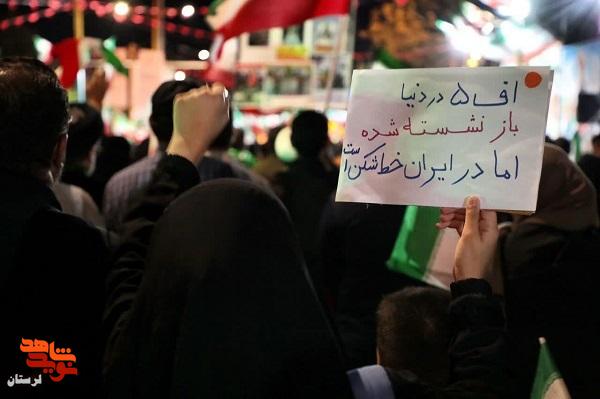 اف ۵ در دنیا
باز نشسته شده
اما در ایران خط شکن است
نوید شاهد
لرستان